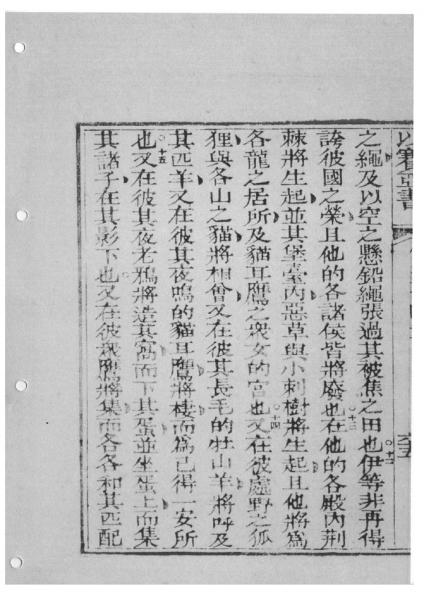 以賽亞書
六十五
之繩及以空之懸鉛繩張過其被焦之田也○十二伊等非再得
誇彼國之榮且他的各諸侯皆將廢也○十三在他的各殿內荊
棘將生起並其堡臺內惡草與小刺樹將生起且他將爲
各龍之居所及貓耳鷹之衆女的宮也○十四又在彼處野之狐
狸與各山之貓將相會又在彼其長毛的牡山羊將呼及
其匹羊又在彼其夜嗚的貓耳鷹將棲而爲己得一安所
也○十五又在彼其夜老鴉將造其窩而下其蛋並坐蛋上而集
其諸子在其影下也○又在彼我鷹將集而各各和其匹配